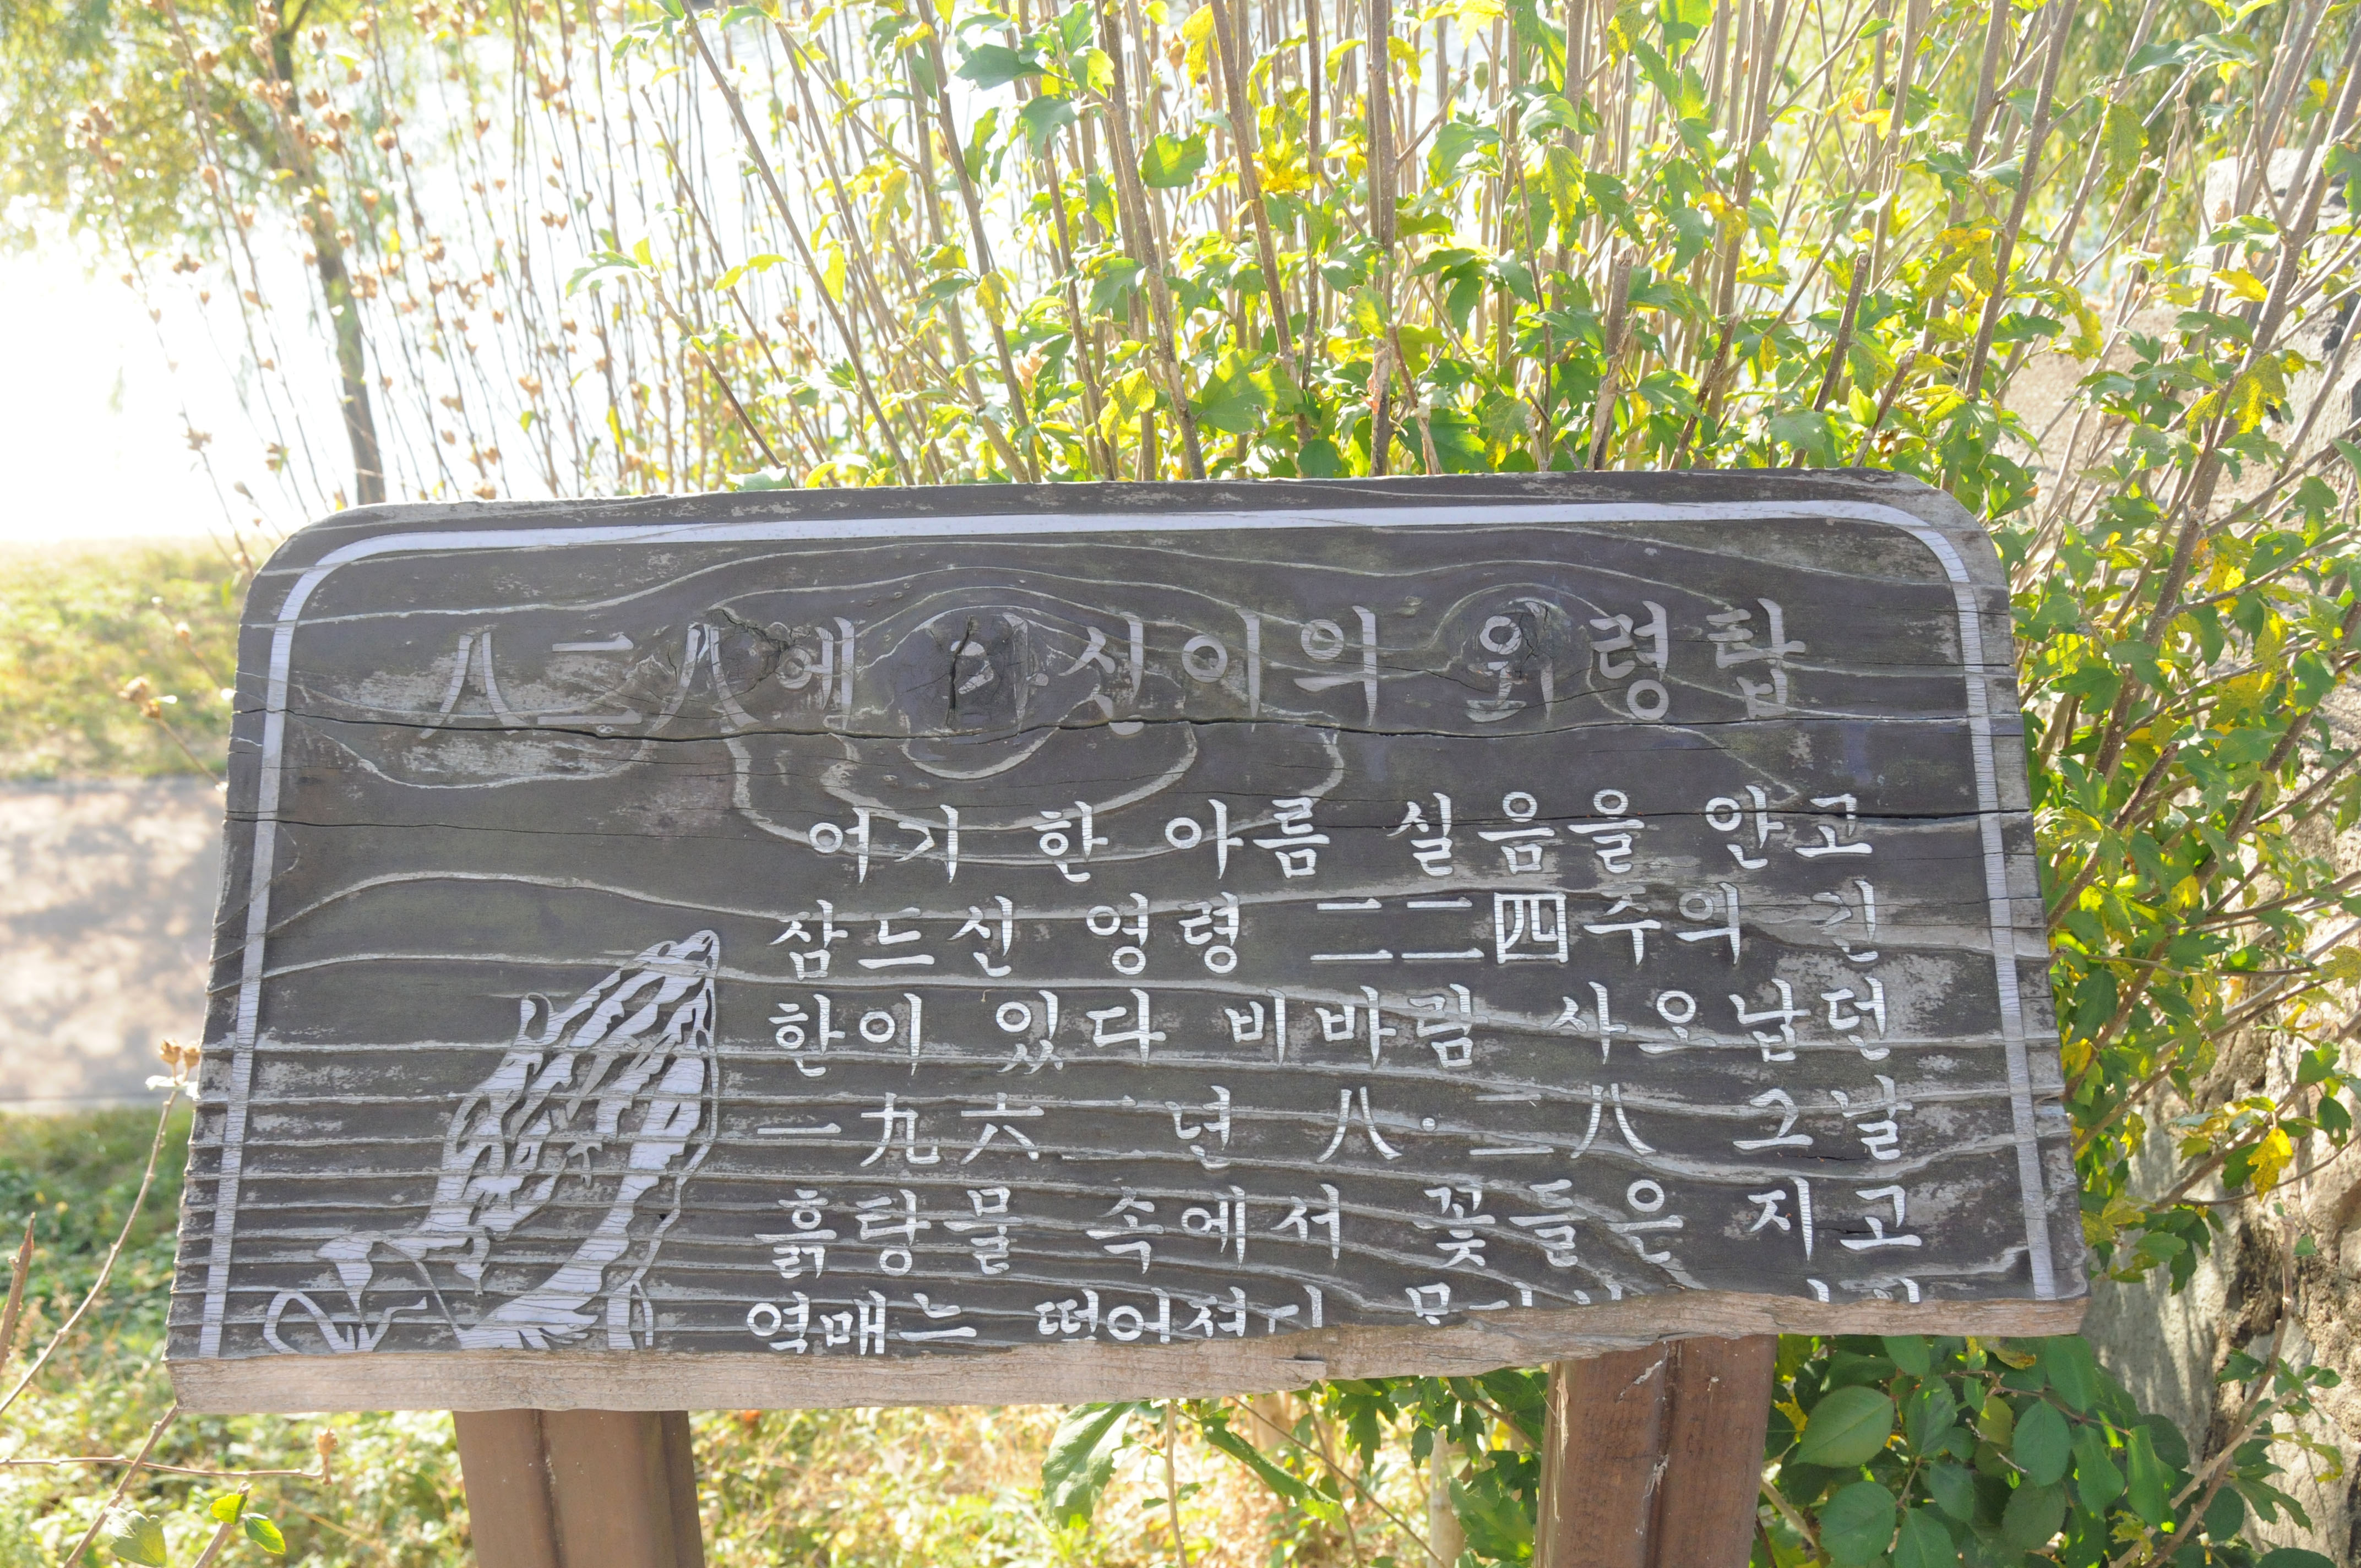 八二八에 가신이의 위령탑
어기 한 아름 실음을 안고
잠드신 영령 二二四주의 긴
한이 있다 비바람 사오납던
一九六二년 八·二八 그날
흙탕물 속에서 꽃들은 지고
역매느 떨어져